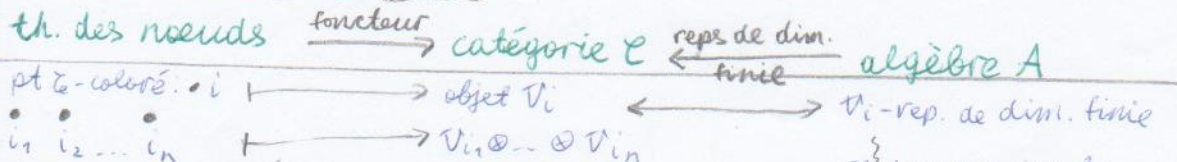 th. des nœuds foncteur catégorie C reps de dim. finie algèbre A
pt C-coloré: • i ⟼ objet Vi ⟷ Vi-rep. de dim. finie
i1 i2 ... in ⟼ Vi1 ⊗ .. ⊗ Vin